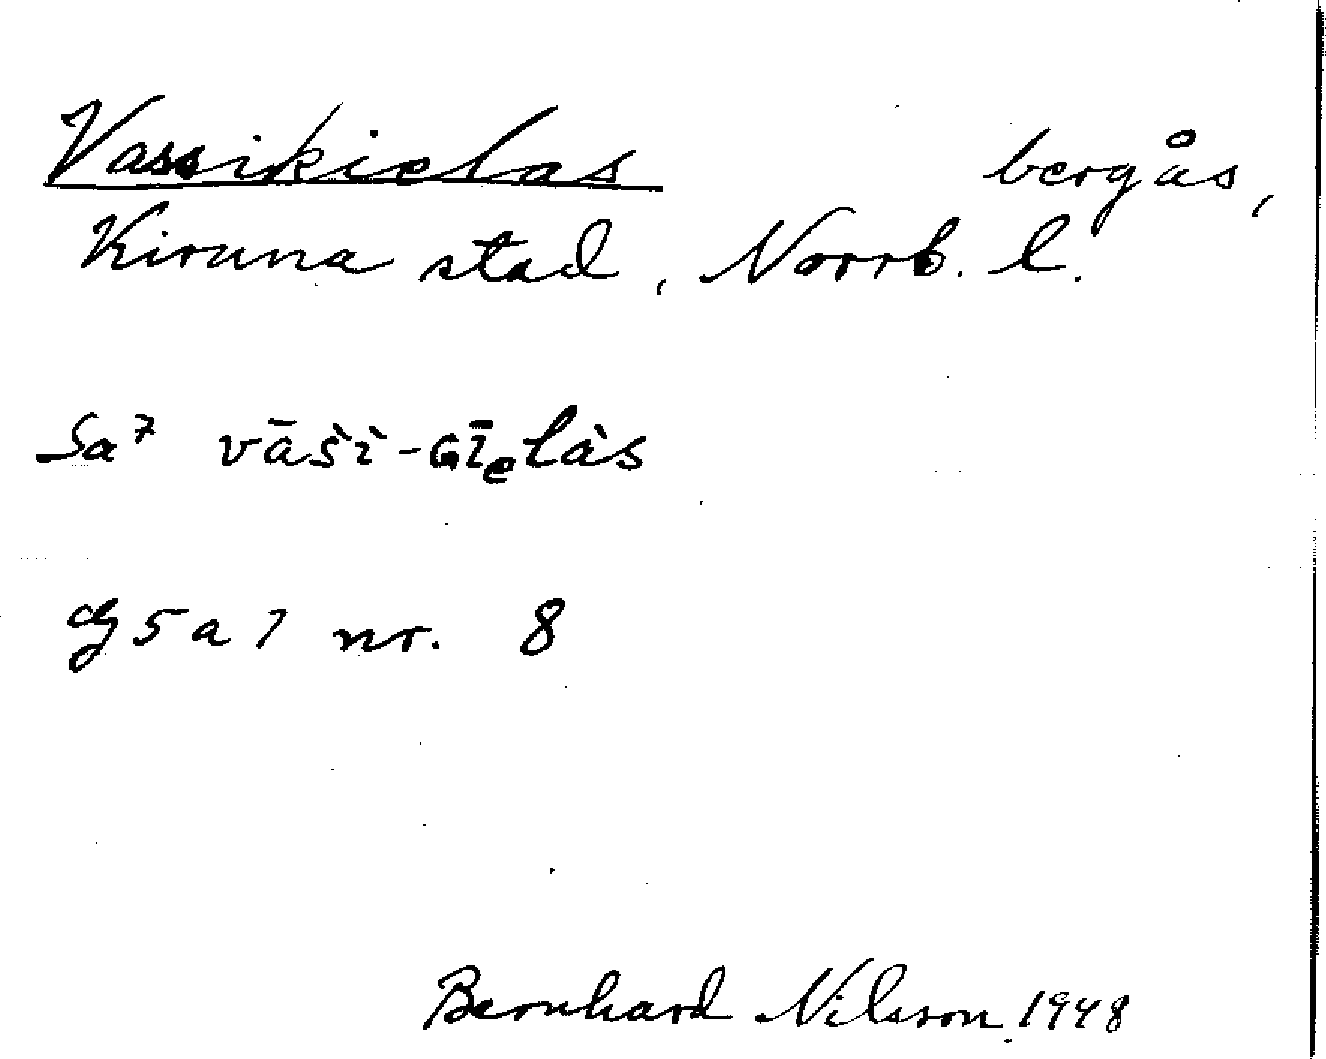 Vassikielas bergås,
Kiruna stad, Norrb. l.
Sa⁷ vāšì-Gīₑlàs
5 a 7 nr. 8
Bernhard Nilsson 1948